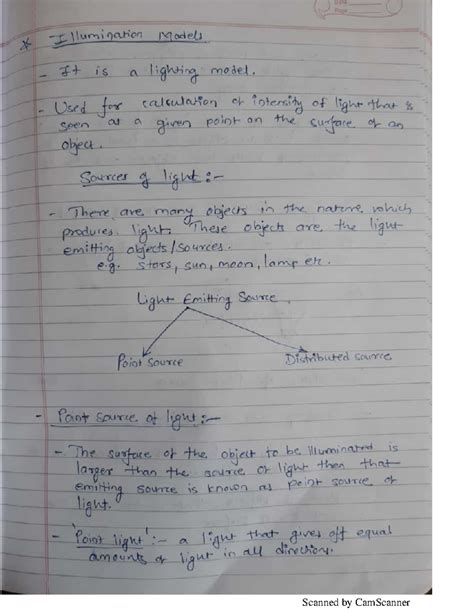 * Illumination Models
- It is a lighting model.
- Used for calculation of intensity of light that is
seen at a given point on the surface of an
object.
Sources of light :-
- There are many objects in the nature which
produces light. These objects are the light
emitting objects/sources.
e.g. stars, sun, moon, lamp etc.
Light Emitting Source
Point Source Distributed source
- Point source of light :-
- The surface of the object to be illuminated is
larger than the source of light then that
emitting source is known as point source of
light.
- 'Point light' :- a light that gives off equal
amounts of light in all direction.
Scanned by CamScanner